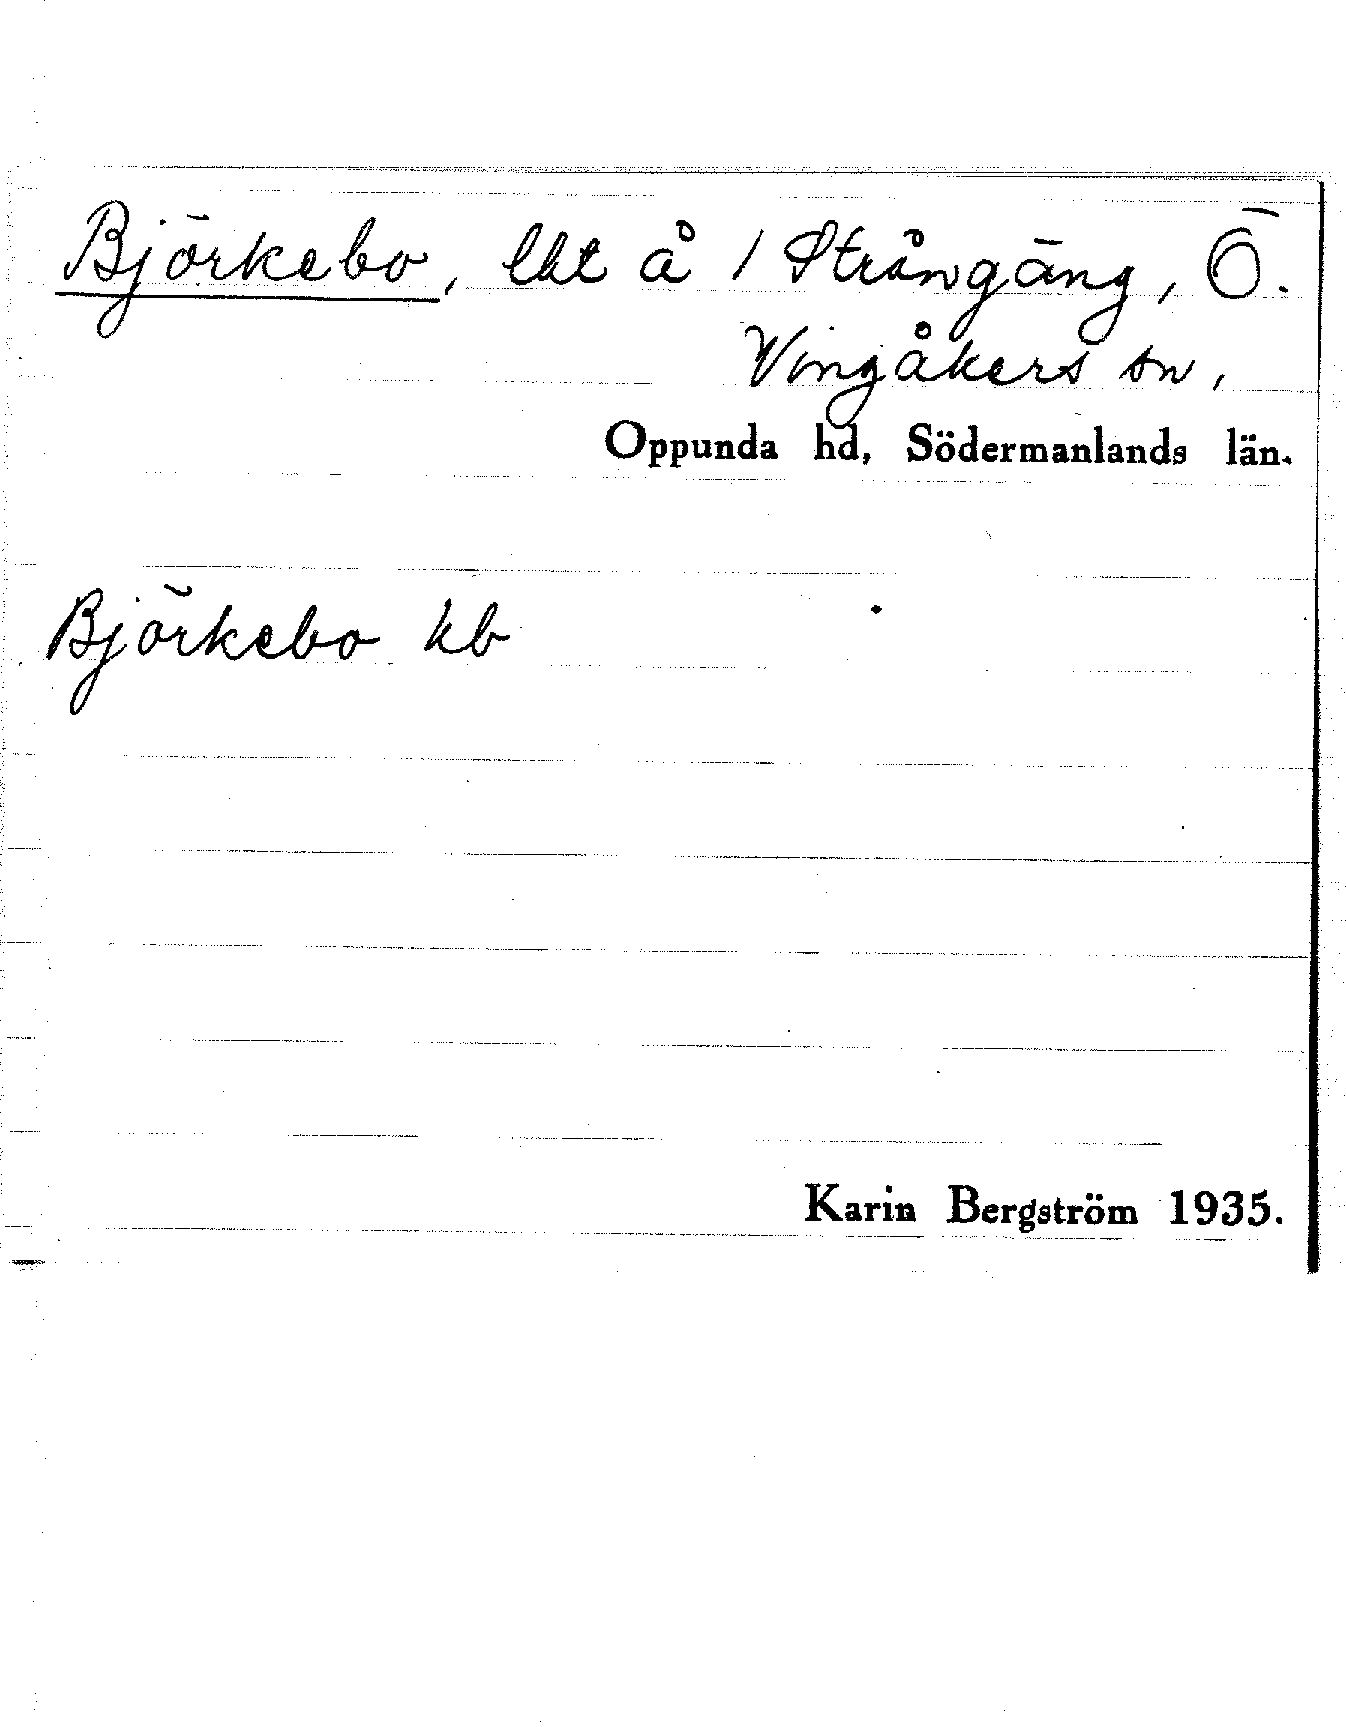 Björkebo, lht å 1 Strångäng, Ö.
Vingåkers sn,
Oppunda hd, Södermanlands län.
Björkebo kb
Karin Bergström 1935.